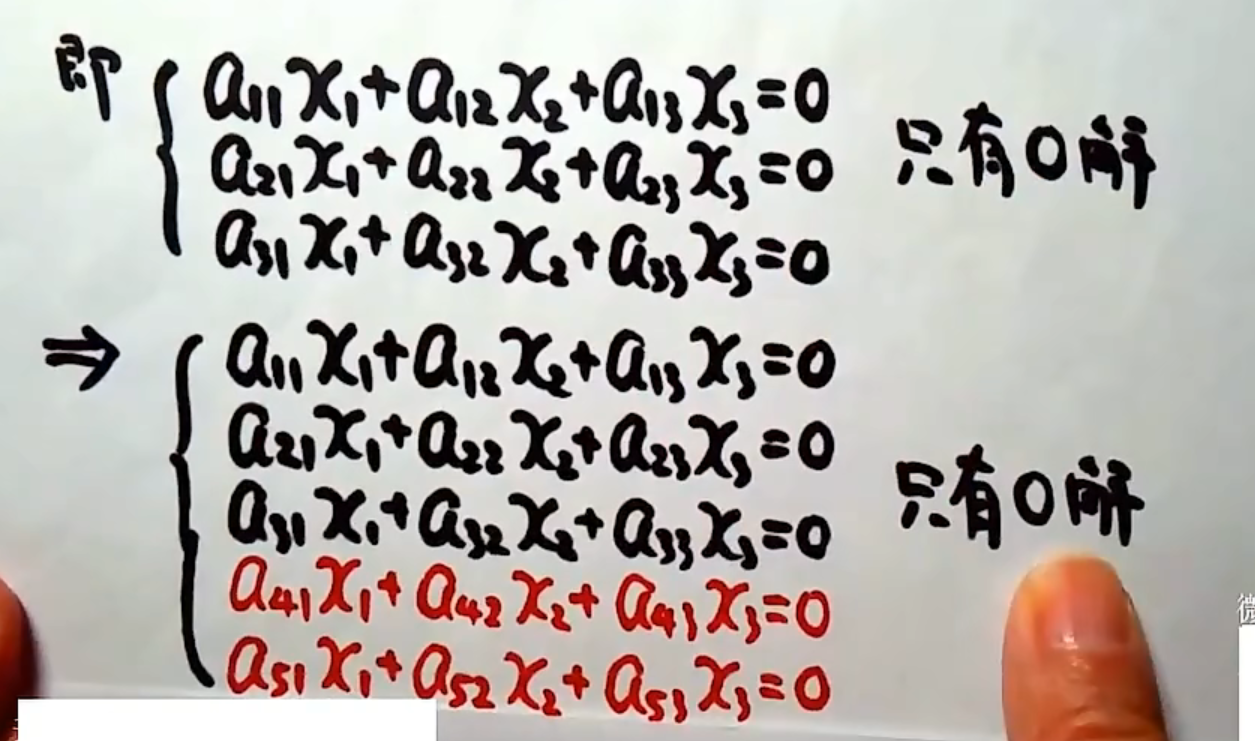 即 a₁₁x₁+a₁₂x₂+a₁₃x₃=0
a₂₁x₁+a₂₂x₂+a₂₃x₃=0 只有0解
a₃₁x₁+a₃₂x₂+a₃₃x₃=0
⇒ a₁₁x₁+a₁₂x₂+a₁₃x₃=0
a₂₁x₁+a₂₂x₂+a₂₃x₃=0
a₃₁x₁+a₃₂x₂+a₃₃x₃=0 只有0解
a₄₁x₁+a₄₂x₂+a₄₃x₃=0
a₅₁x₁+a₅₂x₂+a₅₃x₃=0
微